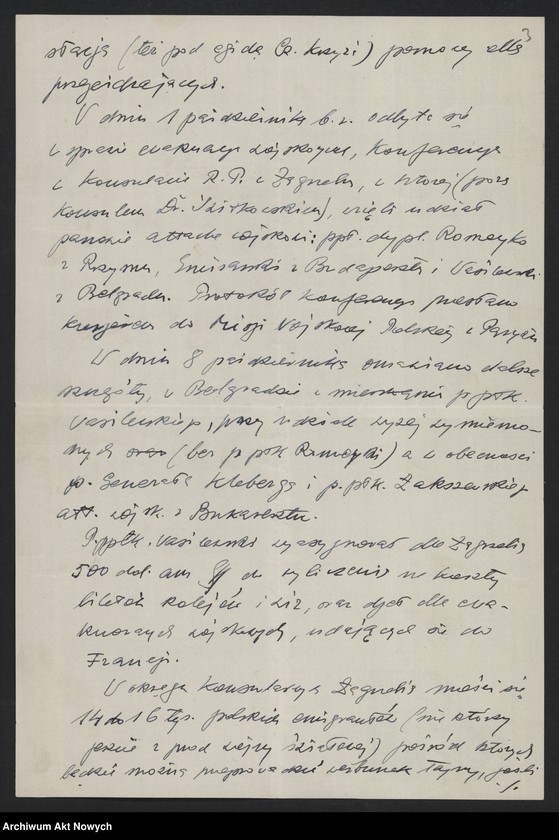 3
stacja (też pod egidą Cz. Krzyża) pomocy dla
przejeżdżających.
W dniu 1 października b.r. odbyła się
w sprawie ewakuacji wojskowych, Konferencja
w Konsulacie R.P. w Zagrzebiu, w której (poza
Konsulem Dr.), wzięli udział
panowie attache wojskowi: ppł. dypl. Romeyko
z Rzymu, Emisarski z Budapesztu i Wasilewski
z Belgradu. Protokół Konferencji przesłano
kurjerem do Misji Wojskowej Polskiej w Paryżu
W dniu 8 października omawiano dalsze
szczegóły, w Belgradzie w mieszkaniu p. ppłk.
Wasilewskiego, przy udziale wyżej wymienio-
nych oraz (bez p. ppłk Romeyki) a w obecności
p. Generała Kleberga i p. ppłk. Zakrzewskiego
att. wojsk. z Bukaresztu.
P. ppłk. Wasilewski wyasygnował dla Zagrzebia
500 dol. am do wyliczenia na koszty
biletów kolejów i wiz, oraz dyet dla ewa-
kuowanych wojskowych, udających się do
Francji.
W okręgu Konsularnym Zagrzebia mieści się
14 do 16 tys. polskich emigrantów (niektórzy
jeszcze z przed wojny światowej) pośród których
będzie można przeprowadzić werbunek tajny, jeśli
./.
Archiwum Akt Nowych